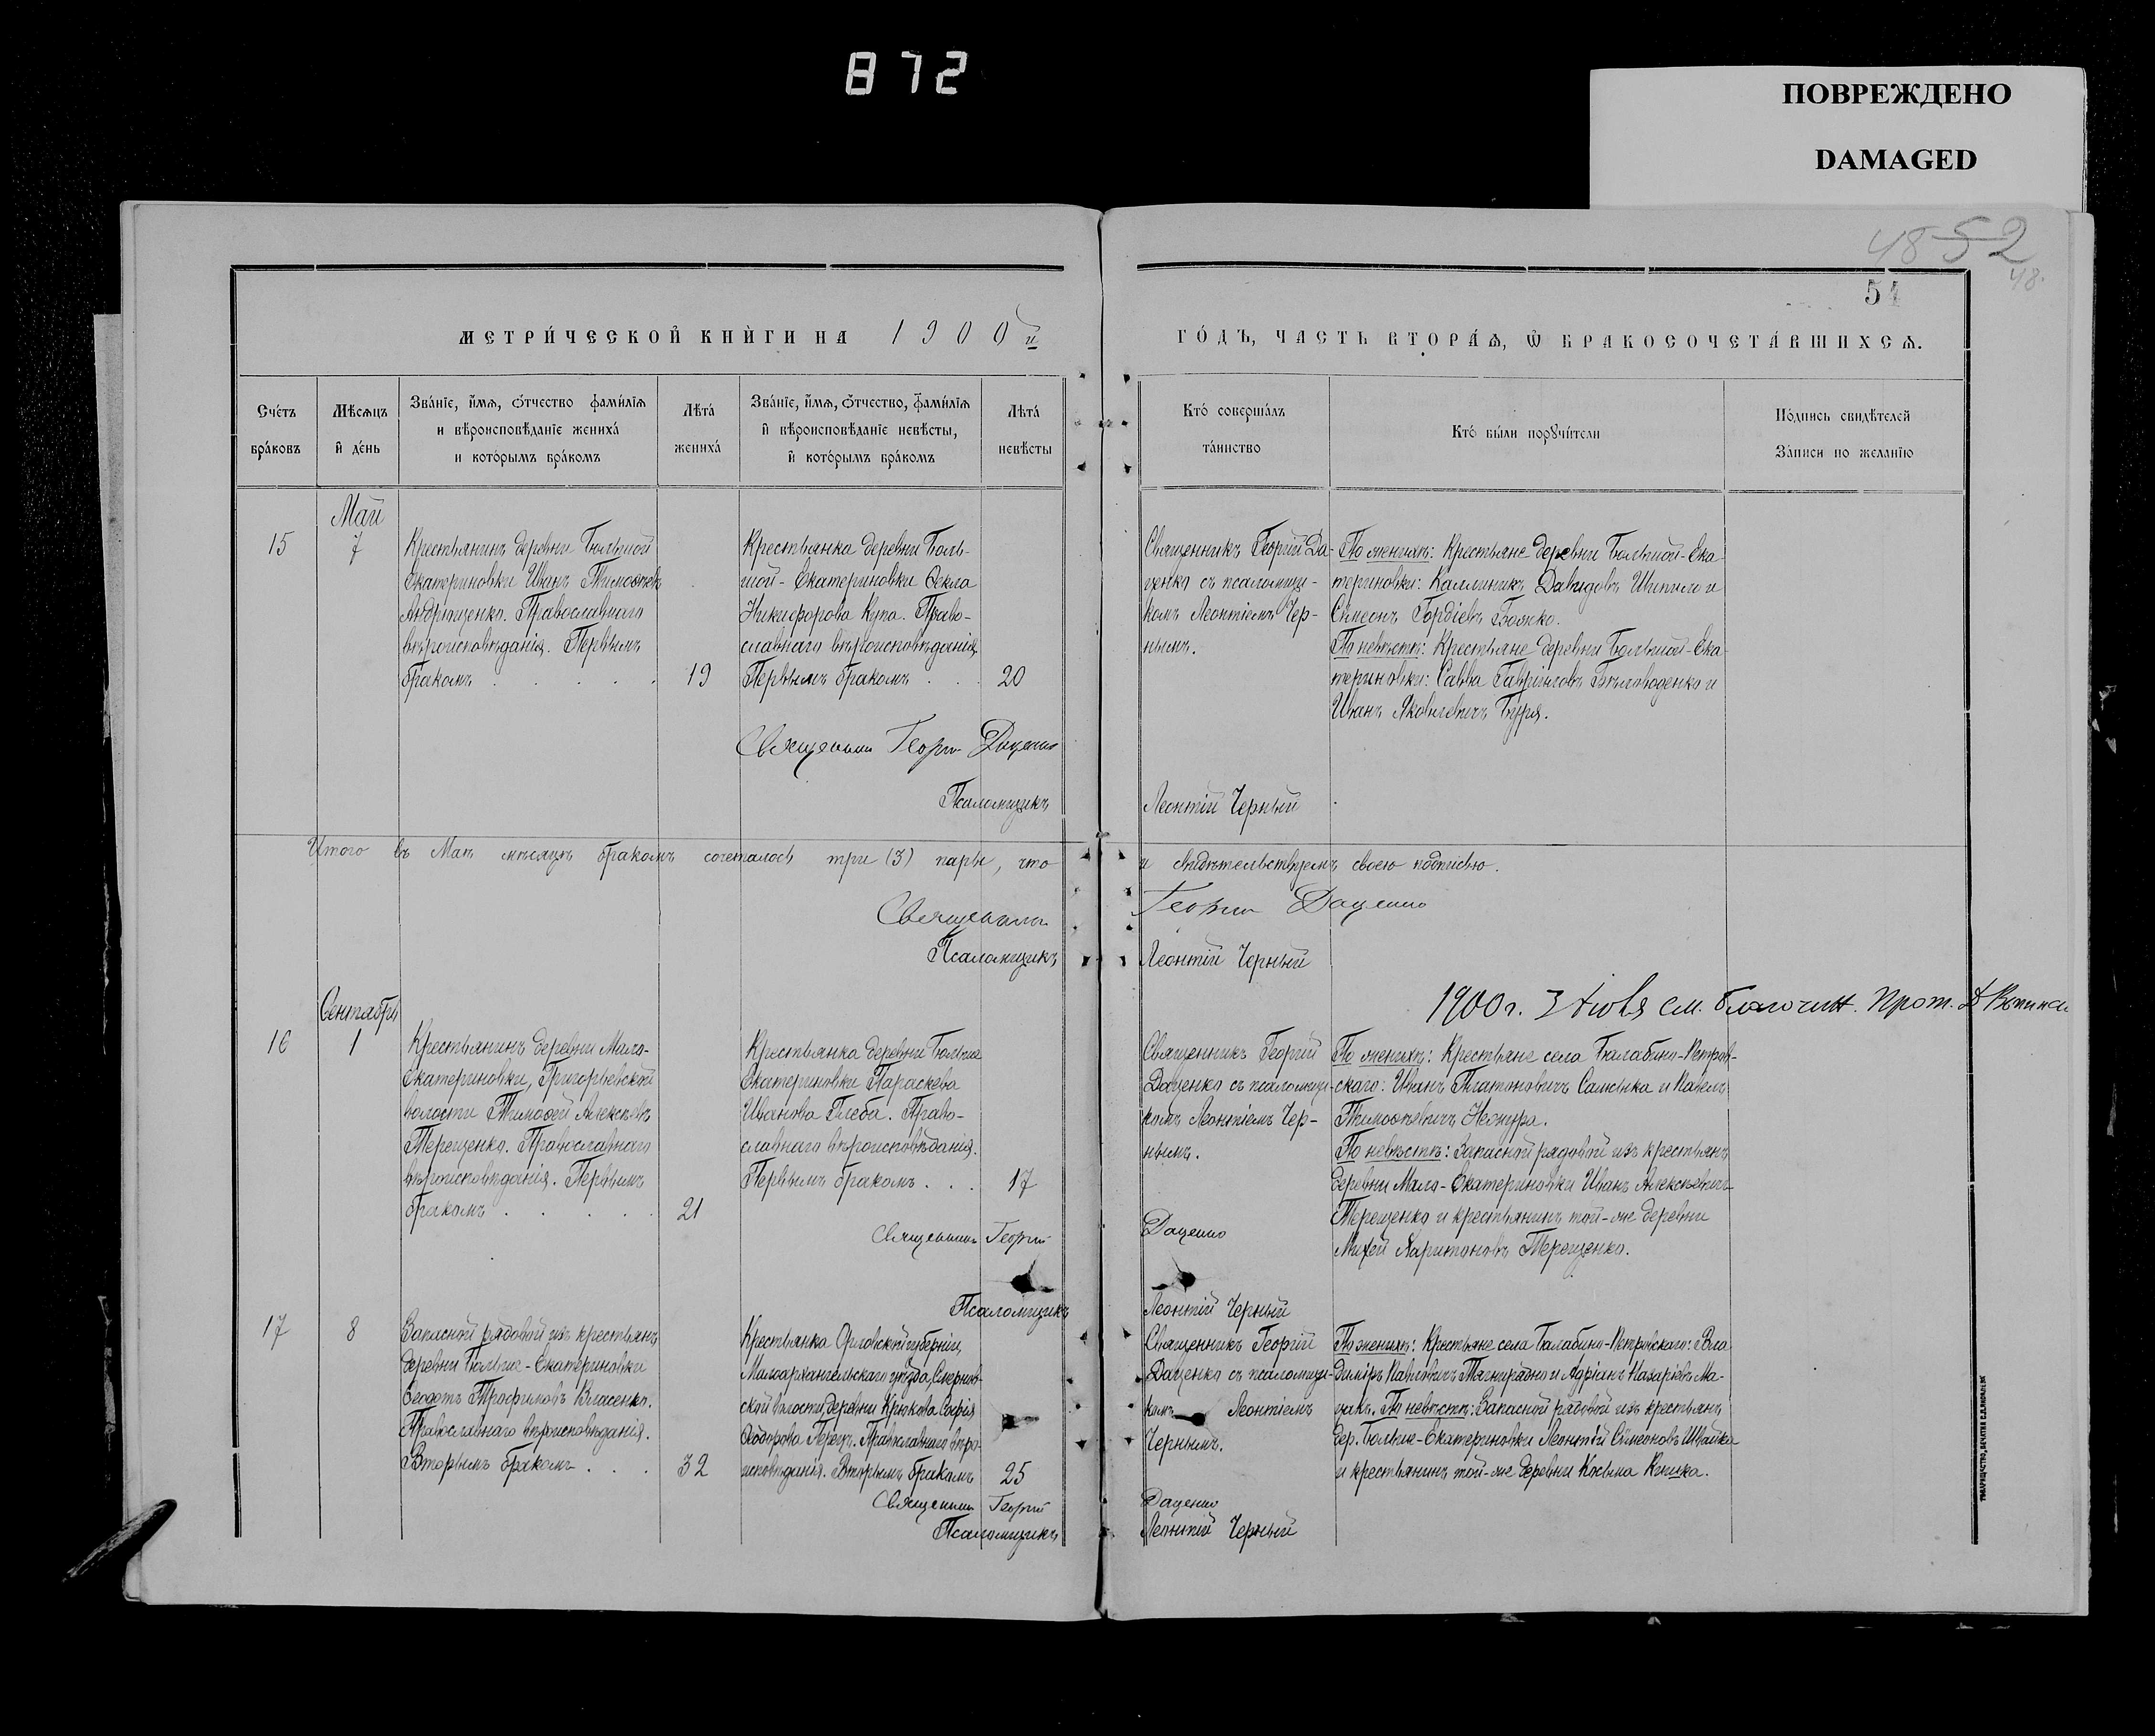 872
ПОВРЕЖДЕНО
DAMAGED
48 52
48.
51
МЕТРИ́ЧЕСКОЙ КНЍГИ НА 1900й
ГО́ДЪ, ЧАСТЬ ВТОРА́Ѧ, Ѽ БРАКОСОЧЕТА́ВШИХСѦ.
Сче́тъ
бра́ковъ
Мѣ́сѧцъ
и҆ де́нь
Зва́нїе, и҆́мѧ, ѻ҆́тчество фами́лїѧ
и вѣроисповѣ́данїе жениха́
и кото́рымъ бра́комъ
Лѣта́
жениха́
Зва́нїе, и҆́мѧ, ѻ҆́тчество, фами́лїѧ
и҆ вѣроисповѣ́данїе невѣ́сты,
и҆ кото́рымъ бра́комъ
Лѣта́
невѣ́сты
Кто́ соверша́лъ
та́инство
Кто́ бы́ли порꙋчи́тели
По́дпись свидѣ́телей
За́писи по жела́нїю
Май
15
7
Крестьянинъ деревни Большой
Екатериновки Иванъ Тимоѳеевъ
Андрющенко. Православнаго
вѣроисповѣданія. Первымъ
бракомъ . . . . .
19
Крестьянка деревни Боль-
шой-Екатериновки Ѳекла
Никифорова Купа. Право-
славнаго вѣроисповѣданія.
Первымъ бракомъ . . .
20
Священникъ Георгій Да-
ценко съ псаломщи-
комъ Леонтіемъ Чер-
нымъ.
По женихѣ: Крестьяне деревни Большой-Ека-
териновки: Каллиникъ Давидовъ Шпило и
Симеонъ Гордіевъ Божко.
По невѣстѣ: Крестьяне деревни Большой-Ека-
териновки: Савва Гавріиловъ Бѣловоденко и
Иванъ Яковлевичъ Буря.
Священникъ Георгій Даценко
Псаломщикъ Леонтій Черный
Итого въ Маѣ мѣсяцѣ бракомъ сочеталось три (3) пары, что и свидѣтельствуемъ своею подписью.
Священникъ Георгій Даценко
Псаломщикъ Леонтій Черный
1900 г. 3 Июля см. благочин. Прот.
Сентябрь
16
1
Крестьянинъ деревни Мало-
Екатериновки, Григорьевской
волости Тимоѳей Алексѣевъ
Терещенко. Православнаго
вѣроисповѣданія. Первымъ
бракомъ . . . . .
21
Крестьянка деревни Больше
Екатериновки Параскева
Иванова Глеба. Право-
славнаго вѣроисповѣданія.
Первымъ бракомъ . . .
17
Священникъ Георгій
Даценко съ псаломщи-
комъ Леонтіемъ Чер-
нымъ.
По женихѣ: Крестьяне села Балабино-Петров-
скаго: Иванъ Платоновичъ Салюнка и Павелъ
Тимоѳеевичъ Нежура.
По невѣстѣ: Запасной рядовой изъ крестьянъ
деревни Мало-Екатериновки Иванъ Алексѣевичъ
Терещенко и крестьянинъ той-же деревни
Михей Харитоновъ Терещенко.
Священникъ Георгій Даценко
Псаломщикъ Леонтій Черный
17
8
Запасной рядовой изъ крестьянъ
деревни Больше-Екатериновки
Ѳеодотъ Трофимовъ Власенко.
Православнаго вѣроисповѣданія.
Вторымъ бракомъ . . .
32
Крестьянка Орловской губерніи,
Малоархангельскаго уѣзда,
ской волости, деревни Крюкова Софія
Ѳеодорова Православнаго вѣро-
исповѣданія. Вторымъ бракомъ
25
Священникъ Георгій
Даценко съ псаломщи-
комъ Леонтіемъ
Чернымъ.
По женихѣ: Крестьяне села Балабино-Петровскаго: Вла
диміръ Павловичъ Тягнирядно и Адріанъ Назаріевъ Ма-
. По невѣстѣ: Запасной рядовой изъ крестьянъ
дер. Больше-Екатериновки Леонтій Симеоновъ Швайка
и крестьянинъ той-же деревни Косьма Кишка.
Священникъ Георгій Даценко
Псаломщикъ Леонтій Черный